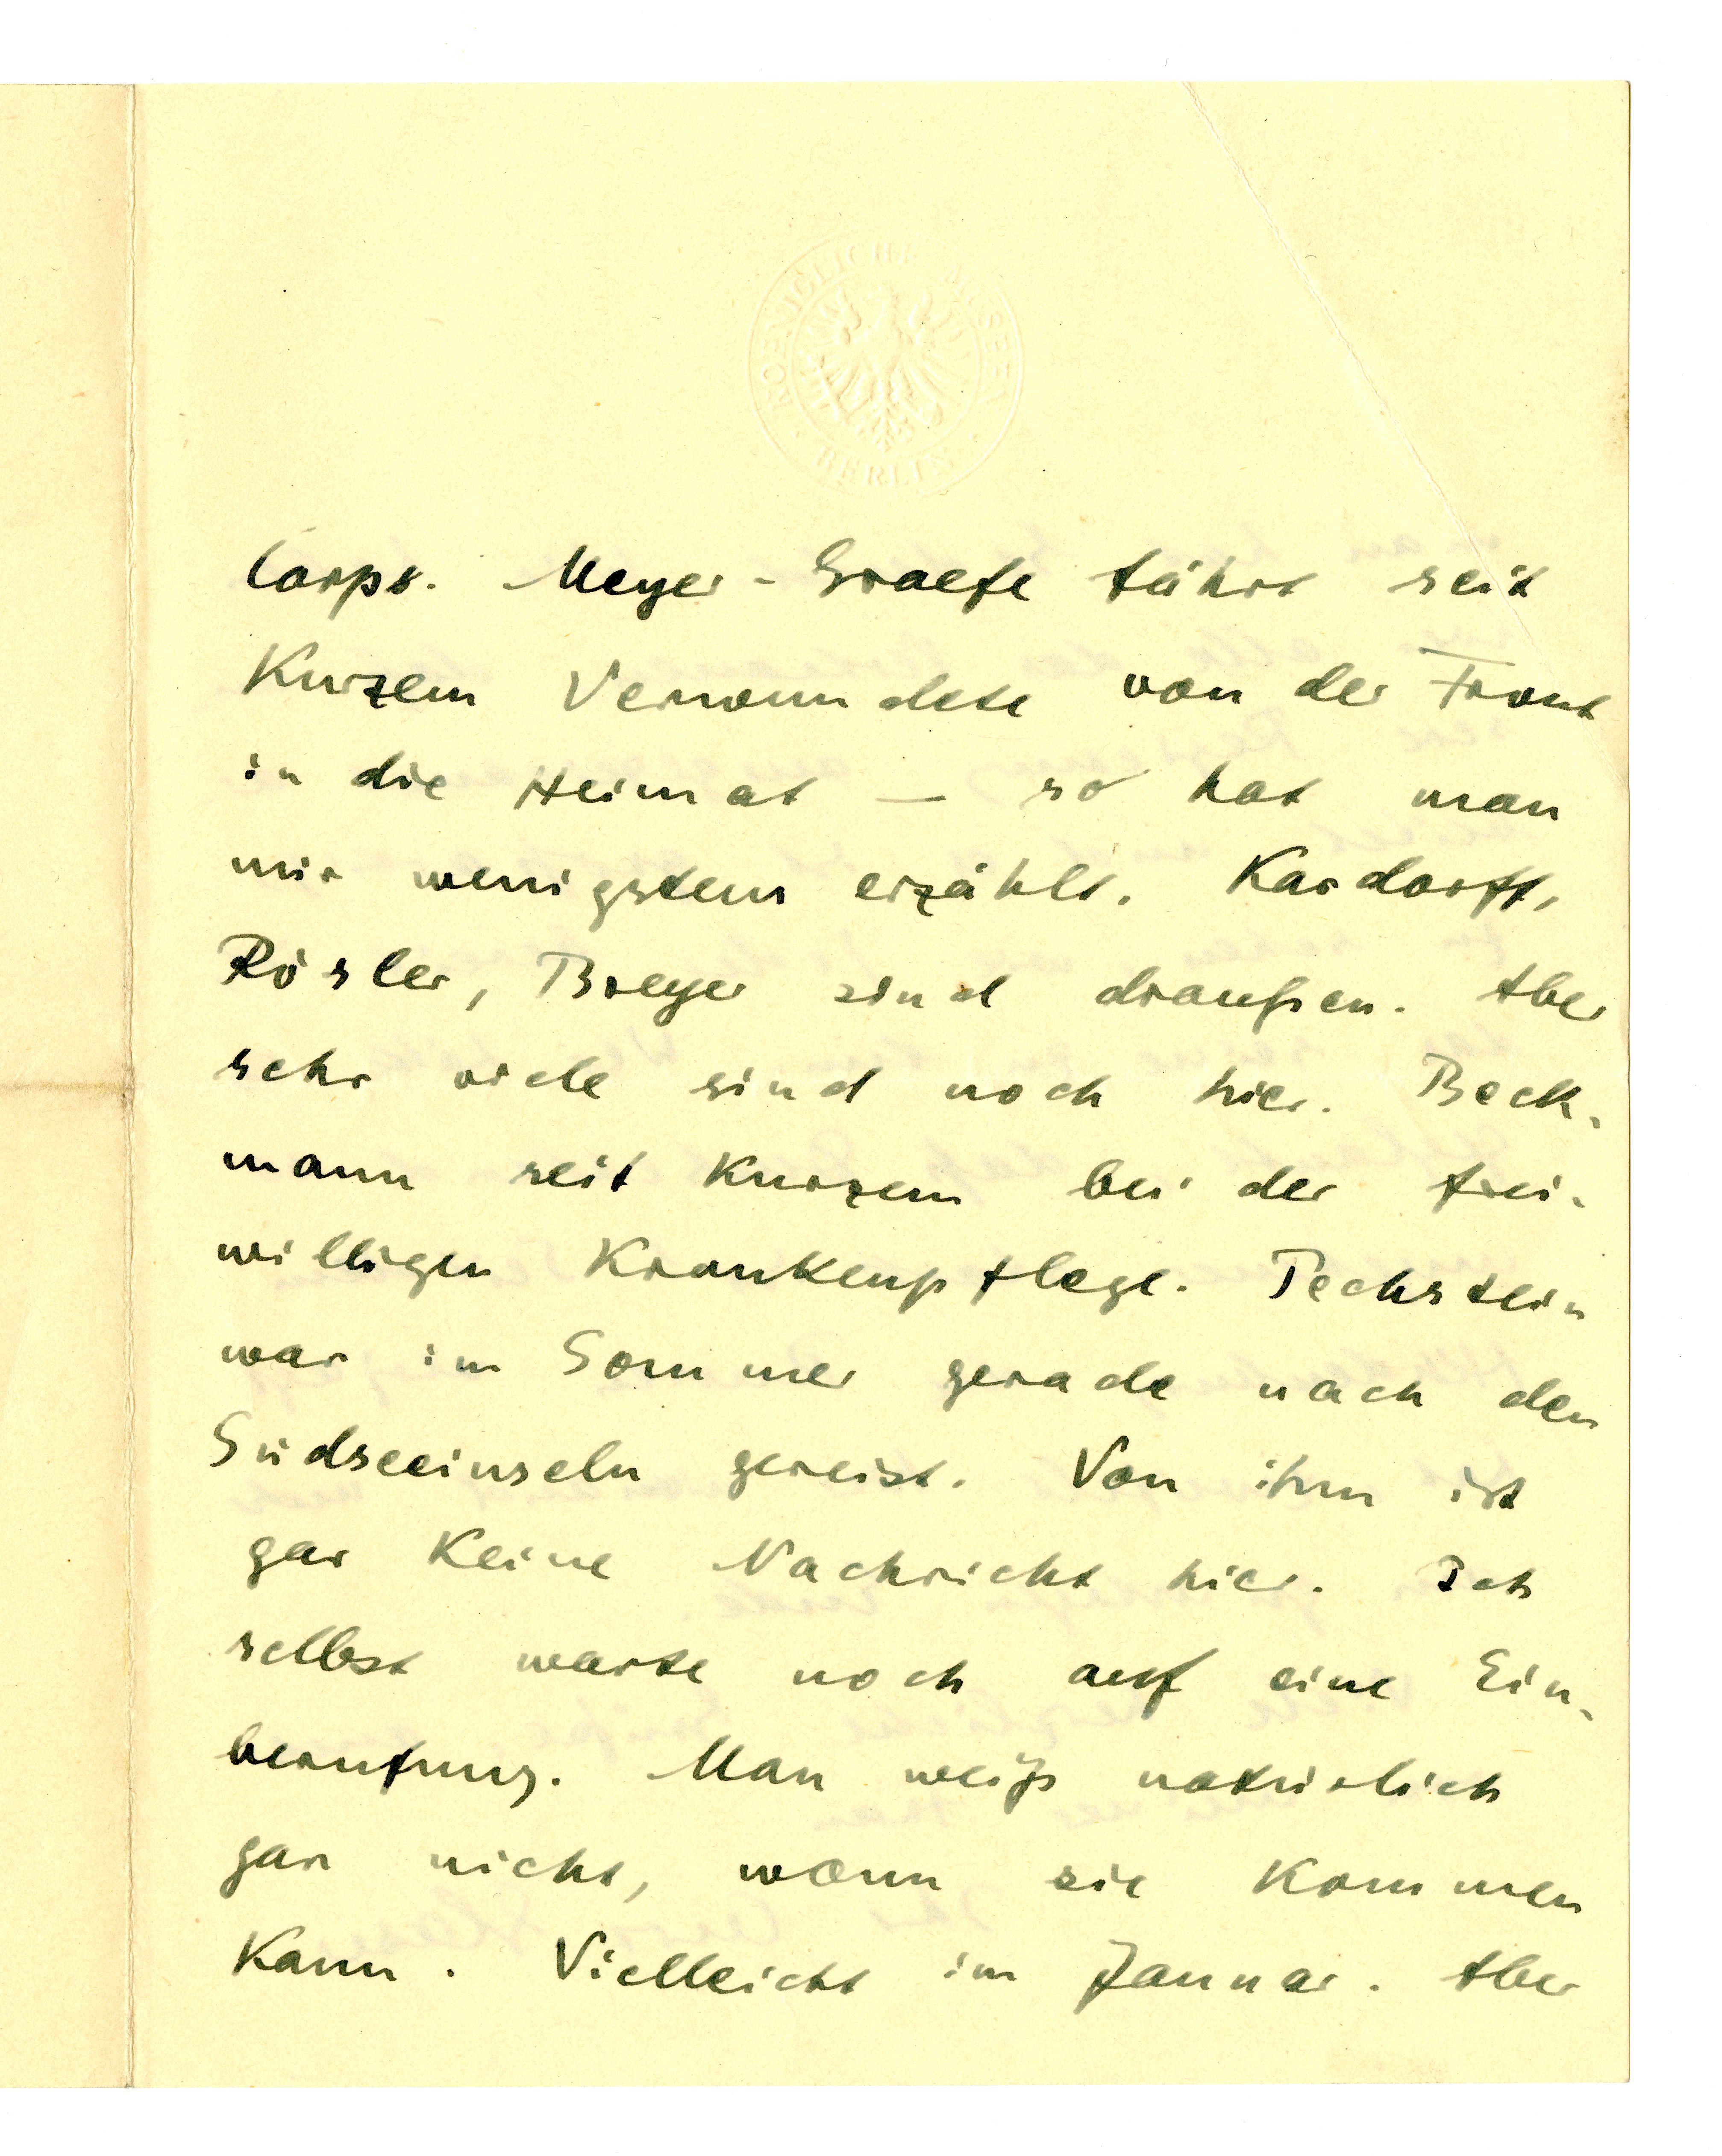 KOENIGLICHE MUSEEN
BERLIN
Corps. Meyer-Graefe fährt seit
Kurzem Verwundete von der Front
in die Heimat — so hat man
mir wenigstens erzählt. Kardorff,
Rösler, Breyer sind draußen. Aber
sehr viele sind noch hier. Beck-
mann seit Kurzem bei der frei-
willigen Krankenpflege. Pechstein
war im Sommer gerade nach den
Südseeinseln gereist. Von ihm ist
gar Keine Nachricht hier. Ich
selbst warte noch auf eine Ein-
berufung. Man weiß natürlich
gar nicht, wann sie Kommen
Kann. Vielleicht im Januar. Aber